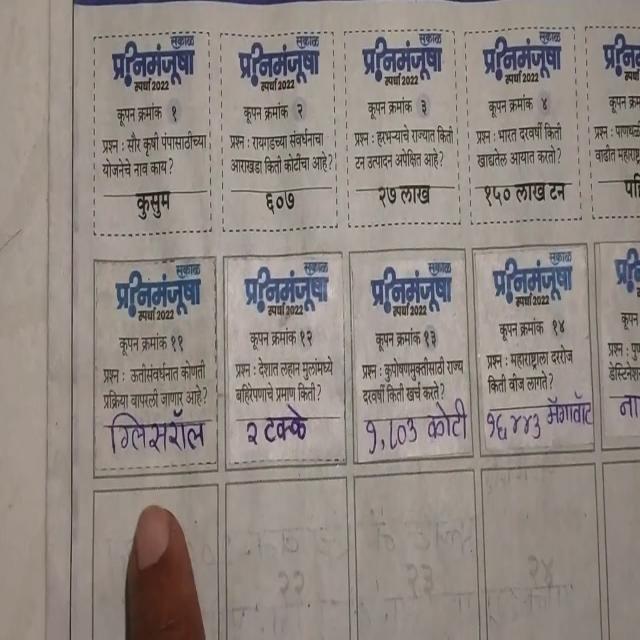 सकाळ
प्रश्नमंजूषा
स्पर्धा 2022
कूपन क्रमांक १
प्रश्न : सौर कृषी पंपासाठीच्या
योजनेचे नाव काय?
कुसुम
सकाळ
प्रश्नमंजूषा
स्पर्धा 2022
कूपन क्रमांक २
प्रश्न : रायगडच्या संवर्धनाचा
आराखडा किती कोटींचा आहे?
६०७
सकाळ
प्रश्नमंजूषा
स्पर्धा 2022
कूपन क्रमांक ३
प्रश्न : हरभऱ्याचे राज्यात किती
टन उत्पादन अपेक्षित आहे?
२७ लाख
सकाळ
प्रश्नमंजूषा
स्पर्धा 2022
कूपन क्रमांक ४
प्रश्न : भारत दरवर्षी किती
खाद्यतेल आयात करतो?
१५० लाख टन
सकाळ
प्रश्नमंजूषा
स्पर्धा 2022
कूपन क्रमांक ११
प्रश्न : ऊतीसंवर्धनात कोणती
प्रक्रिया वापरली जाणार आहे?
ग्लिसरॉल
सकाळ
प्रश्नमंजूषा
स्पर्धा 2022
कूपन क्रमांक १२
प्रश्न : देशात लहान मुलांमध्ये
बहिरेपणाचे प्रमाण किती?
२ टक्के
सकाळ
प्रश्नमंजूषा
स्पर्धा 2022
कूपन क्रमांक १३
प्रश्न : कुपोषणमुक्तीसाठी राज्य
दरवर्षी किती खर्च करते?
१,८०३ कोटी
सकाळ
प्रश्नमंजूषा
स्पर्धा 2022
कूपन क्रमांक १४
प्रश्न : महाराष्ट्राला दररोज
किती वीज लागते?
१६,४४३ मेगावॅट
२२
२३
२४